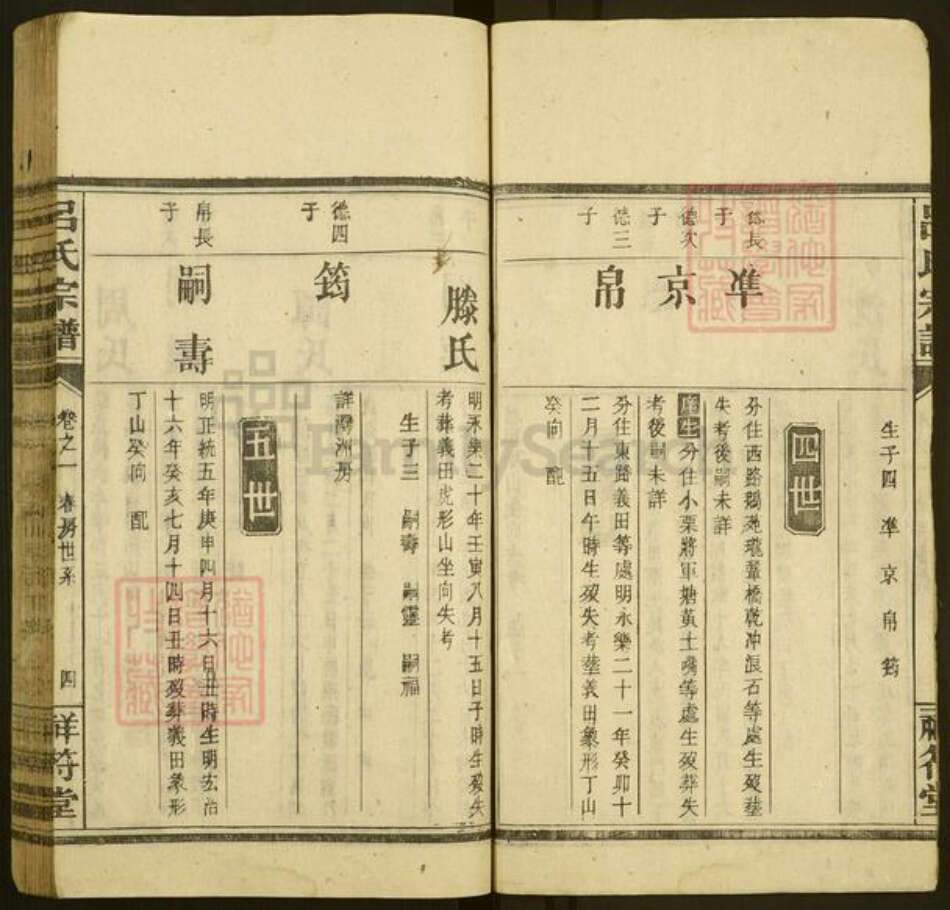 呂氏宗譜
祥符堂
生子四 準 京 帛 筠
四世
德長子
準
分住西路鵝苑瓏輋橋乾冲浪石等處生歿塟
失考後嗣未詳
德次子
京
庠生分住小栗將軍塘黃土嘴等處生歿葬失
考後嗣未詳
德三子
帛
分住東路義田等處明永樂二十一年癸卯十
二月十五日午時生歿失考塟義田象形丁山
癸向 配
滕氏
明永樂二十年壬寅八月十五日子時生歿失
考葬義田虎形山坐向失考
生子三 嗣壽 嗣靈 嗣福
德四子
筠
詳 洲房
五世
帛長子
嗣壽
明正統五年庚申四月十六日丑時生明宏治
十六年癸亥七月十四日丑時歿葬義田象形
丁山癸向 配
呂氏宗譜
卷之一 春房世系
四
祥符堂
FamilySearch